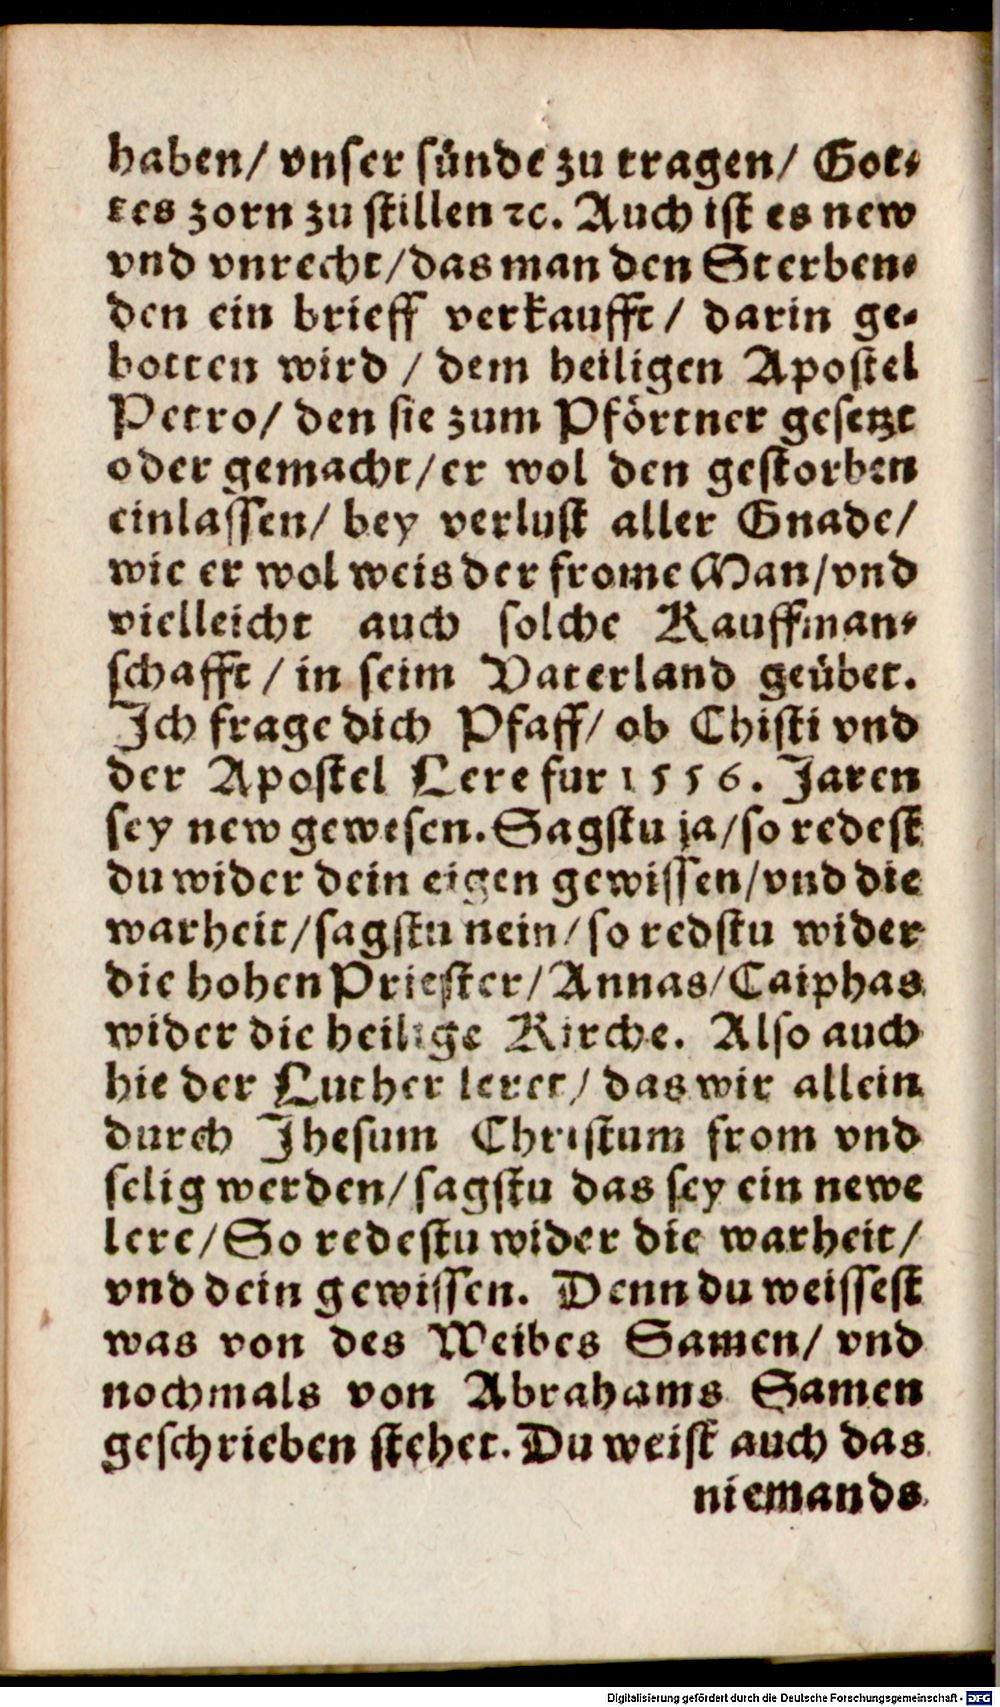 haben/ vnser sünde zu tragen/ Got⸗
tes zorn zu stillen ꝛc. Auch ist es new
vnd vnrecht/das man den Sterben⸗
den ein brieff verkaufft/ darin ge⸗
botten wird / dem heiligen Apostel
Petro/ den sie zum Pförtner gesetzt
oder gemacht/er wol den gestorben
einlassen/ bey verlust aller Gnade/
wie er wol weis der frome Man/vnd
vielleicht auch solche Kauffman⸗
schafft / in seim Vaterland geübet.
Ich frage dich Pfaff/ ob Chisti vnd
der Apostel Lere fur 1556. Jaren
sey new gewesen. Sagstu ja/so redest
du wider dein eigen gewissen/vnd die
warheit/sagstu nein/so redstu wider
die hohen Priester/Annas/Caiphas
wider die heilige Kirche. Also auch
hie der Luther leret/ das wir allein
durch Jhesum Christum from vnd
selig werden/sagstu das sey ein newe
lere/So redestu wider die warheit/
vnd dein gewissen. Denn du weissest
was von des Weibes Samen/ vnd
nochmals von Abrahams Samen
geschrieben stehet. Du weist auch das
niemands
Digitalisierung gefördert durch die Deutsche Forschungsgemeinschaft - DFG